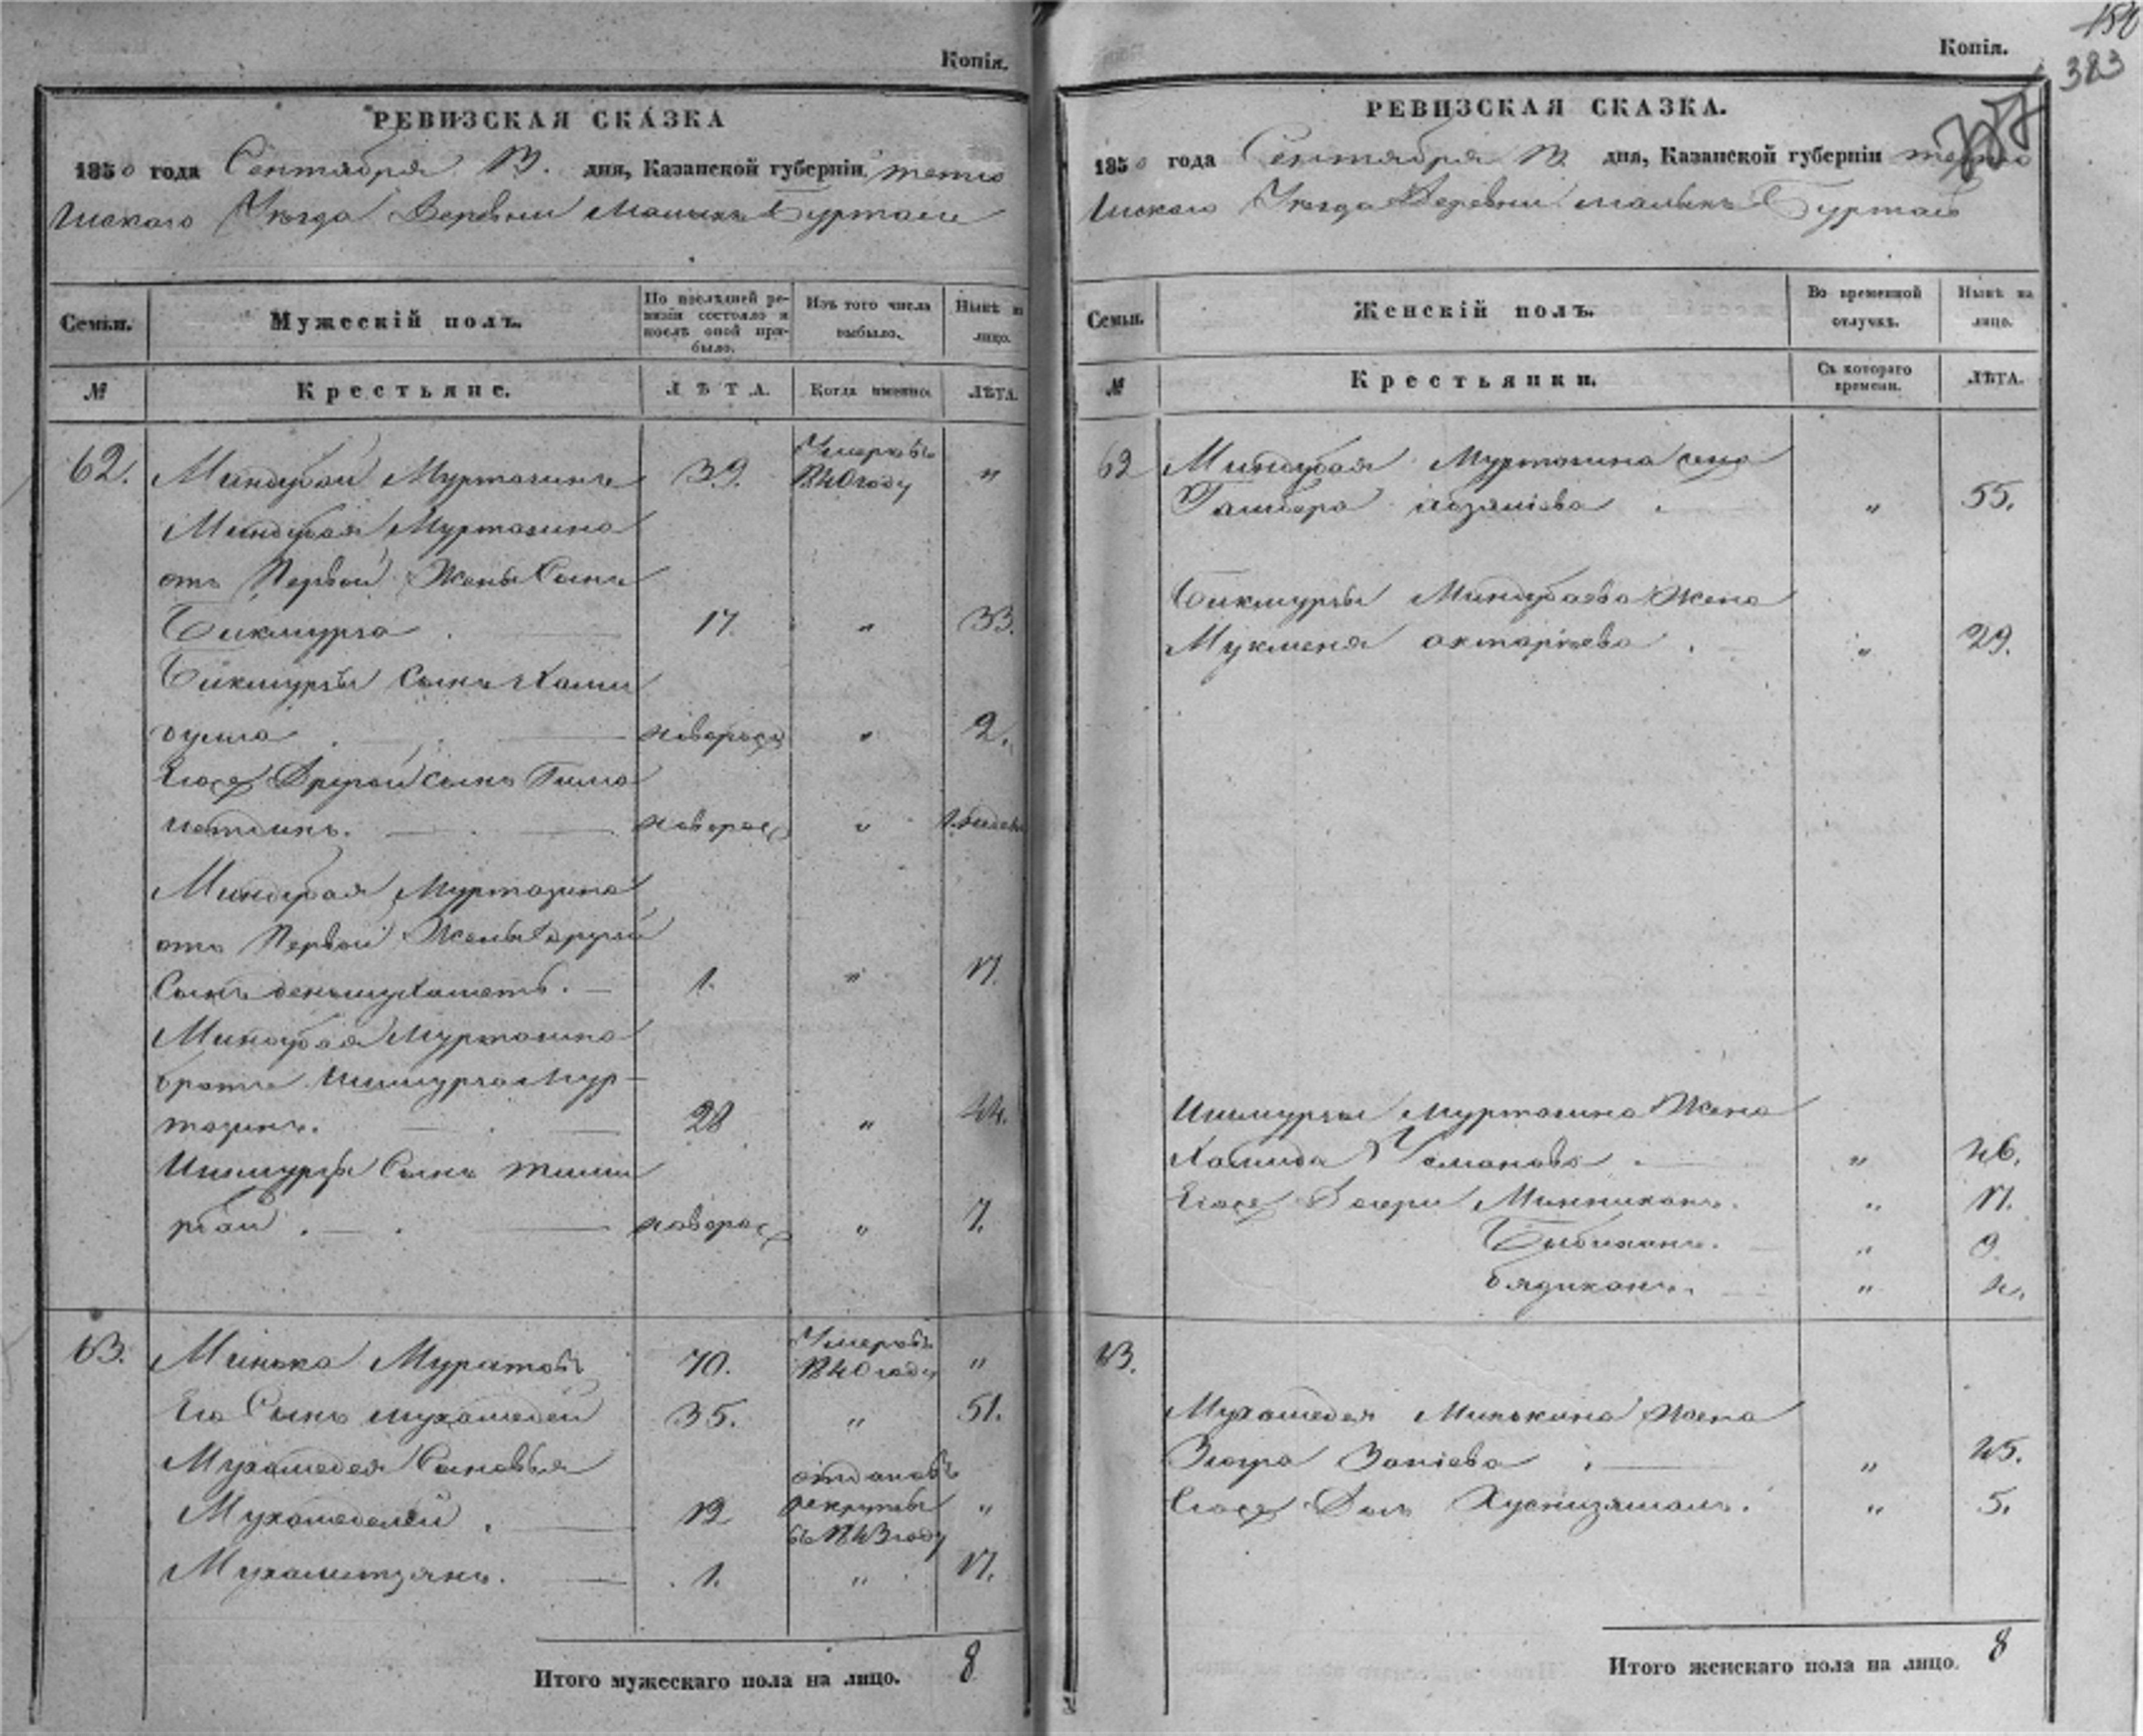 Копія.
РЕВИЗСКАЯ СКАЗКА
1850 года Сентября 13. дня, Казанской губерніи тетю
шскаго Уѣзда Деревни малыхъ Буртасъ
Семьи.
Мужескій полъ.
По послѣдней ре-
визіи состояло и
послѣ оной при-
было.
Изъ того числа
выбыло.
Нынѣ на
лицо.
№
Крестьяне.
ЛѢТА.
Когда именно.
ЛѢТА.
62. Миндубай Муртазинъ 39. Умеръ въ 1840 году "
Миндубая Муртазина
отъ Первой Жены Сынъ
Бикмурза 17. " 33.
Бикмурзы Сынъ Хами
дулла новорож " 2.
Егоже Другой сынъ Гима
летдинъ. новорож "
Миндубая Муртазина
отъ Первой Жены другой
Сынъ деньмухаметъ. 1. " 17.
Миндубая Муртазина
братъ Ишмурза Мур-
тазинъ. 28 " 44.
Ишмурзы Сынъ
новорож " 7.
63. Минька Муратовъ 70. Умеръ въ 1840 году "
Его Сынъ мухамедей 35. " 51.
Мухамедея Сыновья
Мухамеделей. 12 отданъ въ рекруты въ 1843 году "
Мухаметзянъ. 1. " 17.
Итого мужескаго пола на лицо. 8
Копія.
383
РЕВИЗСКАЯ СКАЗКА.
1850 года Сентября 13. дня, Казанской губерніи тетю
шскаго Уѣзда Деревни малыхъ Буртасъ
Семьи.
Женскій полъ.
Во временной
отлучкѣ.
Нынѣ на
лицо.
№
Крестьянки.
Съ котораго
времени.
ЛѢТА.
62 Миндубая Муртазина жена
" 55.
Бикмурзы Миндубаева Жена
Мукменя " 29.
Ишмурзы Муртазина Жена
Халида Усманова. " 46.
Егоже Дочери Миннихань. " 17.
Бибихань. " 9.
бядихань. " 4.
63.
Мухамедея Минькина Жена
Зюгра Заніева " 45.
Егоже Дочь Хуснизямаль. " 5.
Итого женскаго пола на лицо. 8